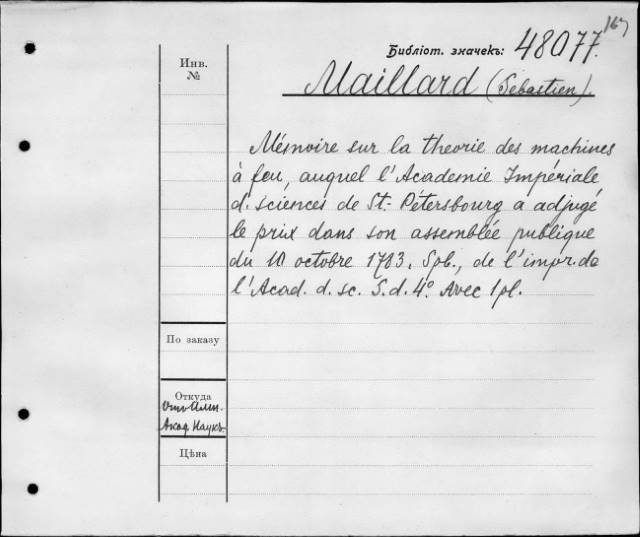 167
Библіот. значекъ: 48077.
Инв.
№
Maillard (Sébastien).
Mémoire sur la theorie des machines
à feu, auquel l'Academie Impériale
d. sciences de St. Pétersbourg a adjugé
le prix dans son assemblée publique
du 10 octobre 1783. Spb., de l'impr. de
l'Acad. d. sc. S. d. 4º. Avec 1 pl.
По заказу
Откуда
Акад Наукъ.
Цѣна